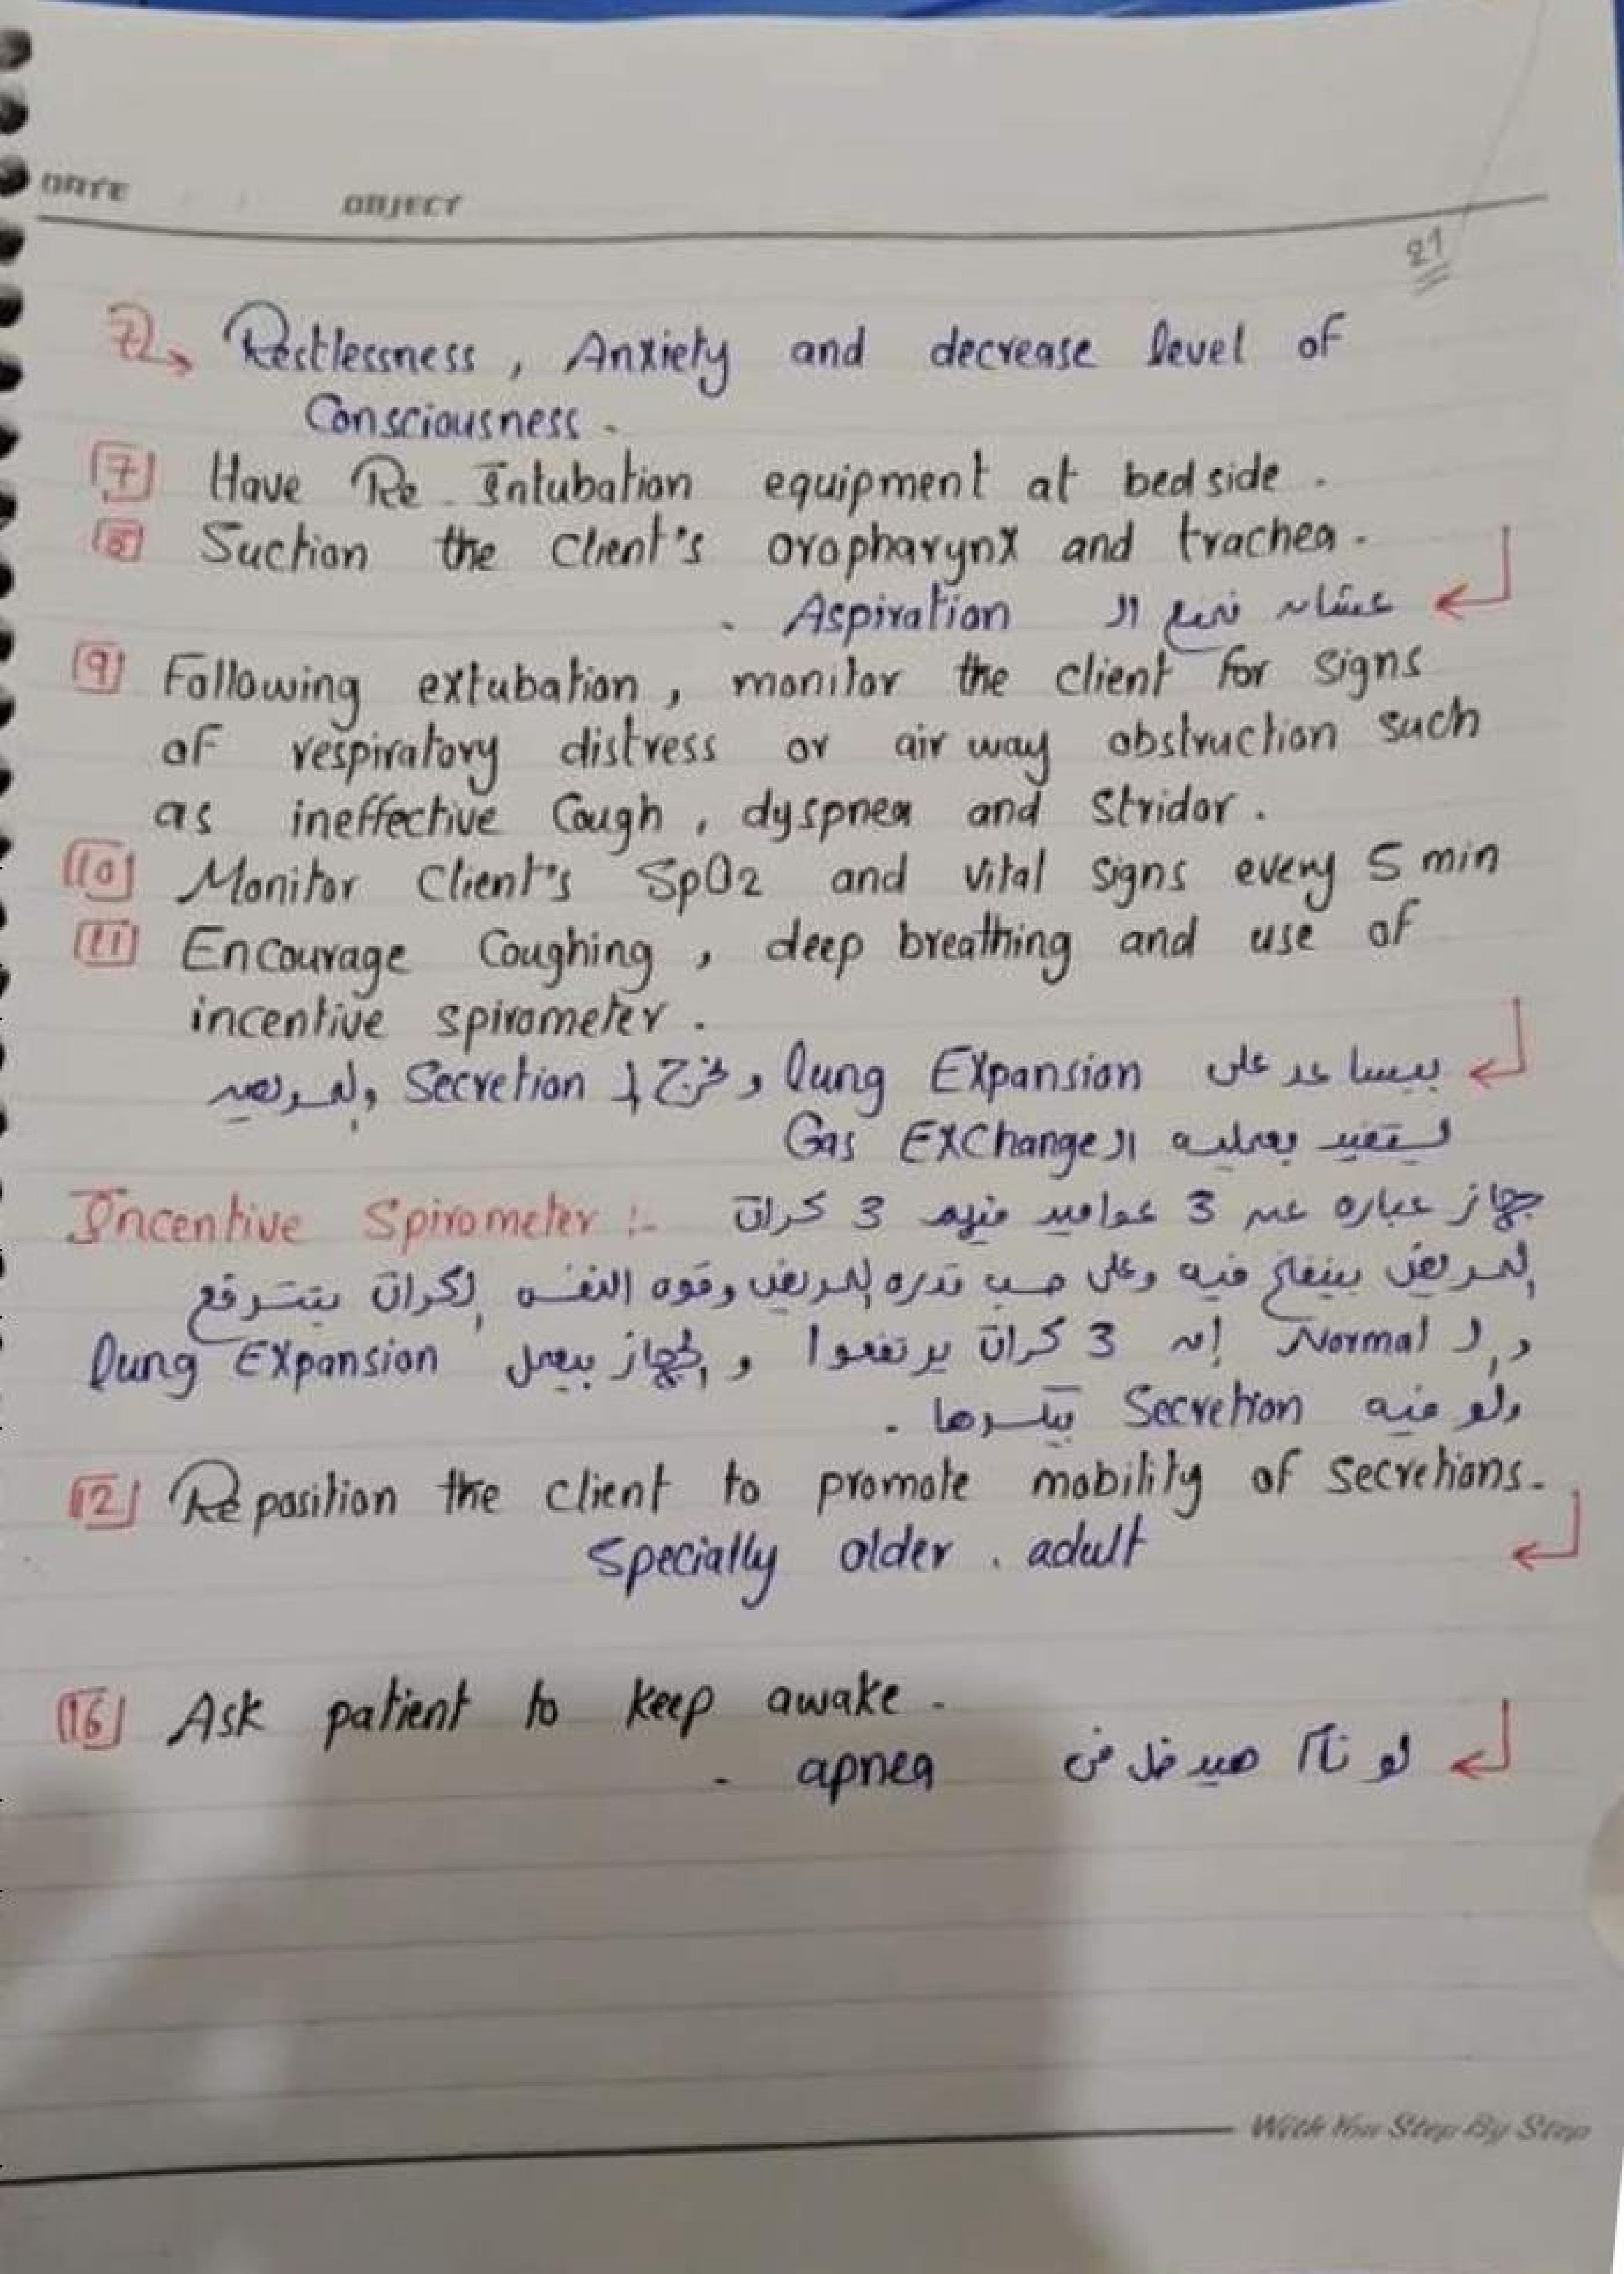 DATE OBJECT
21
7 → Restlessness , Anxiety and decrease level of
Consciousness .
7 Have Re_Intubation equipment at bed side .
8 Suction the Client's oropharynx and trachea .
عشان نمنع ال Aspiration .
9 Following extubation , monitor the client for signs
of respiratory distress or air way obstruction such
as ineffective Cough , dyspnea and Stridor .
10 Monitor Client's SpO2 and vital signs every 5 min
11 Encourage Coughing , deep breathing and use of
incentive spirometer .
بيساعد على Lung Expansion و نخرج ال Secretion والمريض
يستفيد بعمليه ال Gas EXChange
Incentive Spirometer :- جهاز عباره عن 3 عواميد فيهم 3 كرات
المريض بينفخ فيه وعلى حسب قدره المريض وقوه النفس الكرات بتترفع
و ال Normal إن 3 كرات يرتفعوا و الجهاز بيعمل Lung EXpansion
ولو فيه Secretion بيكسرها .
12 Re position the client to promote mobility of secretions .
Specially older . adult
16 Ask patient to keep awake .
لو نام هيدخل في apnea .
With You Step By Step